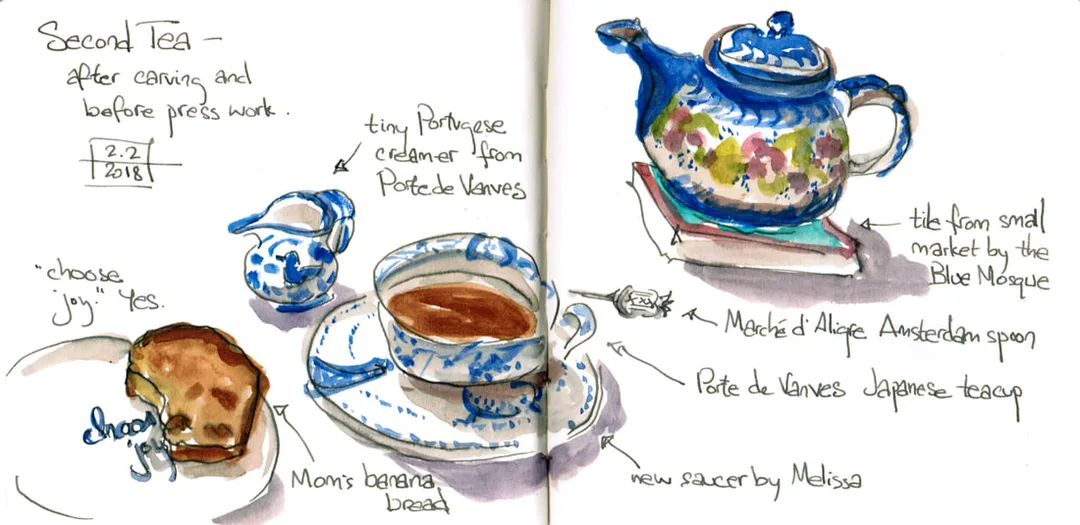 Second Tea –
after carving and
before press work.
2.2
2018
tiny Portugese
creamer from
Porte de Vanves
"choose
joy" Yes.
choose
joy
Mom's banana
bread
tile from small
market by the
Blue Mosque
XXX
Marché d'Aligre Amsterdam spoon
Porte de Vanves Japanese teacup
new saucer by Melissa